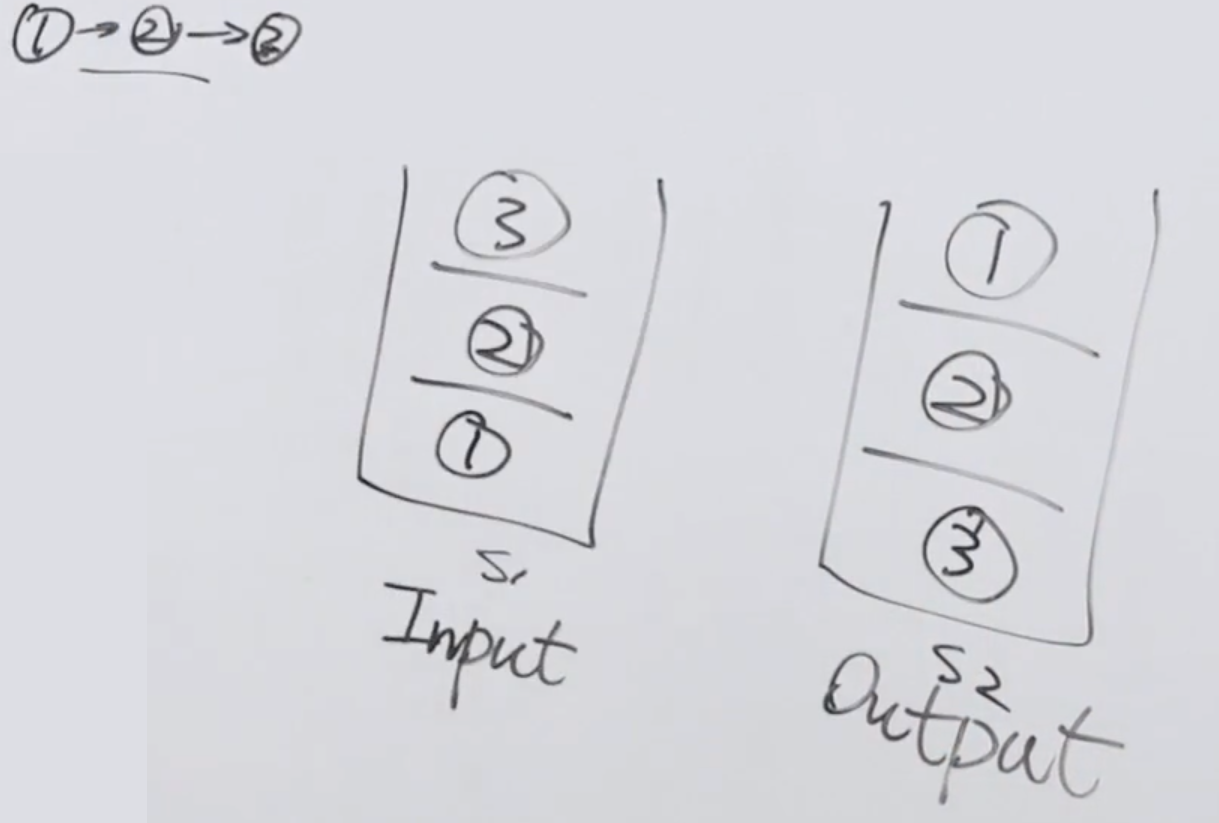 ① → ② →
3
2
1
S1
Input
1
2
3
S2
Output